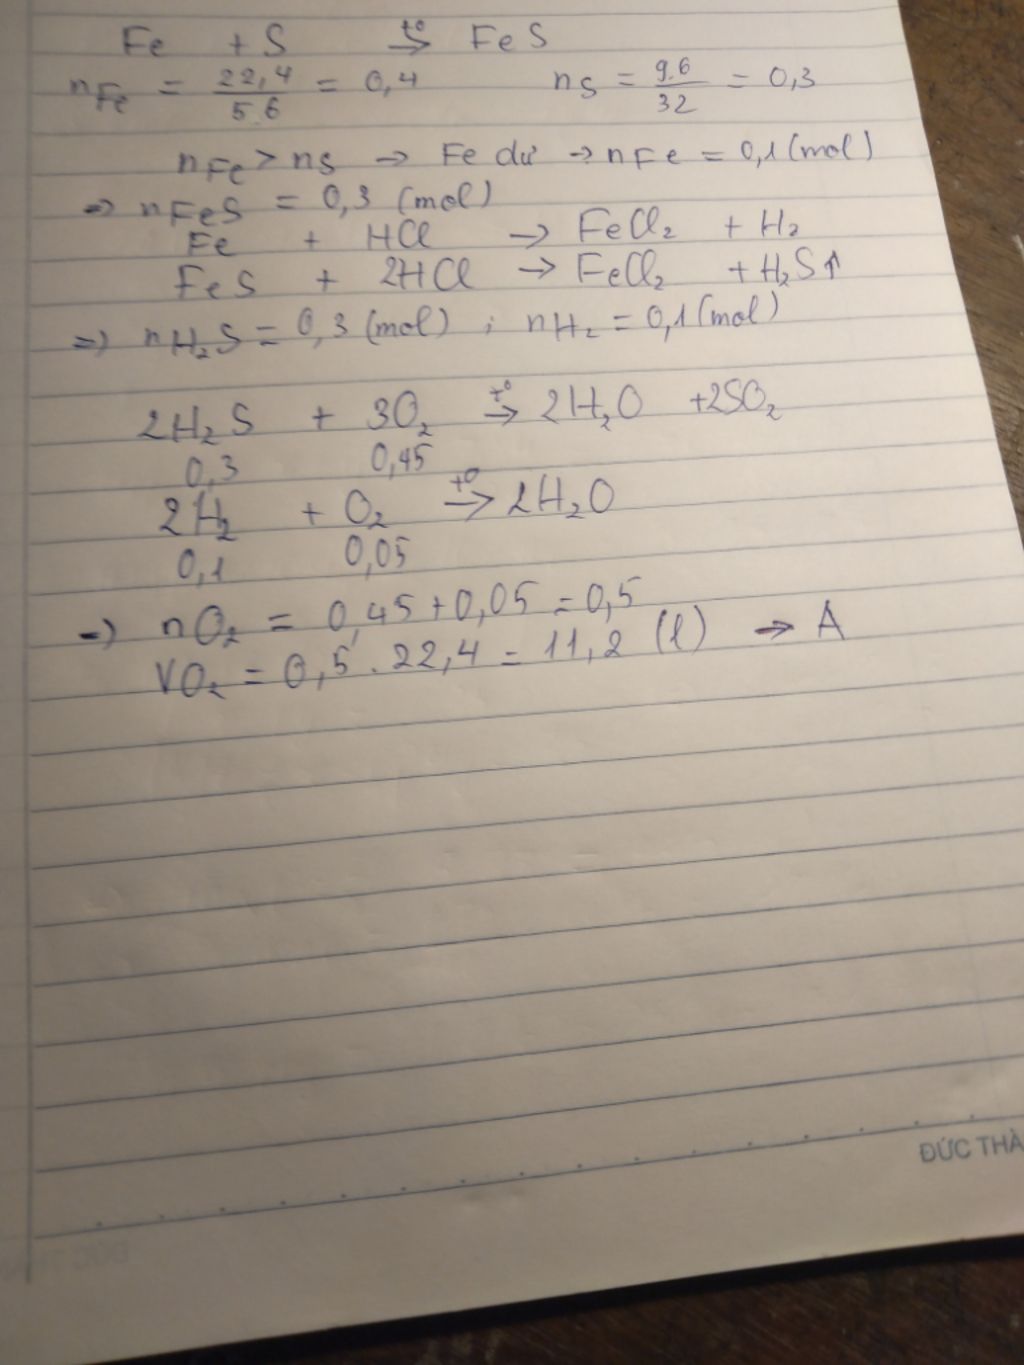 Fe + S t° → FeS
nFe = 22,4/56 = 0,4 nS = 9.6/32 = 0,3
nFe > nS → Fe dư → nFe = 0,1 (mol)
⇒ nFeS = 0,3 (mol)
Fe + HCl → FeCl₂ + H₂
FeS + 2HCl → FeCl₂ + H₂S↑
⇒ nH₂S = 0,3 (mol) ; nH₂ = 0,1 (mol)
2H₂S + 3O₂ t° → 2H₂O + 2SO₂
0,3 0,45
2H₂ + O₂ t° → 2H₂O
0,1 0,05
⇒ nO₂ = 0,45 + 0,05 = 0,5
VO₂ = 0,5 . 22,4 = 11,2 (l) → A
ĐỨC THÀ